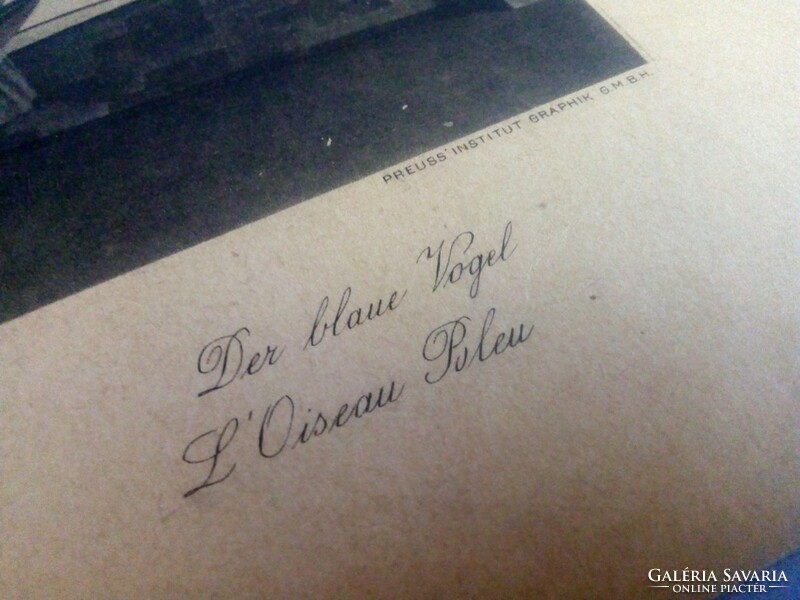 PREUSS' INSTITUT GRAPHIK G.M.B.H.
Der blaue Vogel
L'Oiseau Pbleu
GALÉRIA SAVARIA
ONLINE PIACTÉR